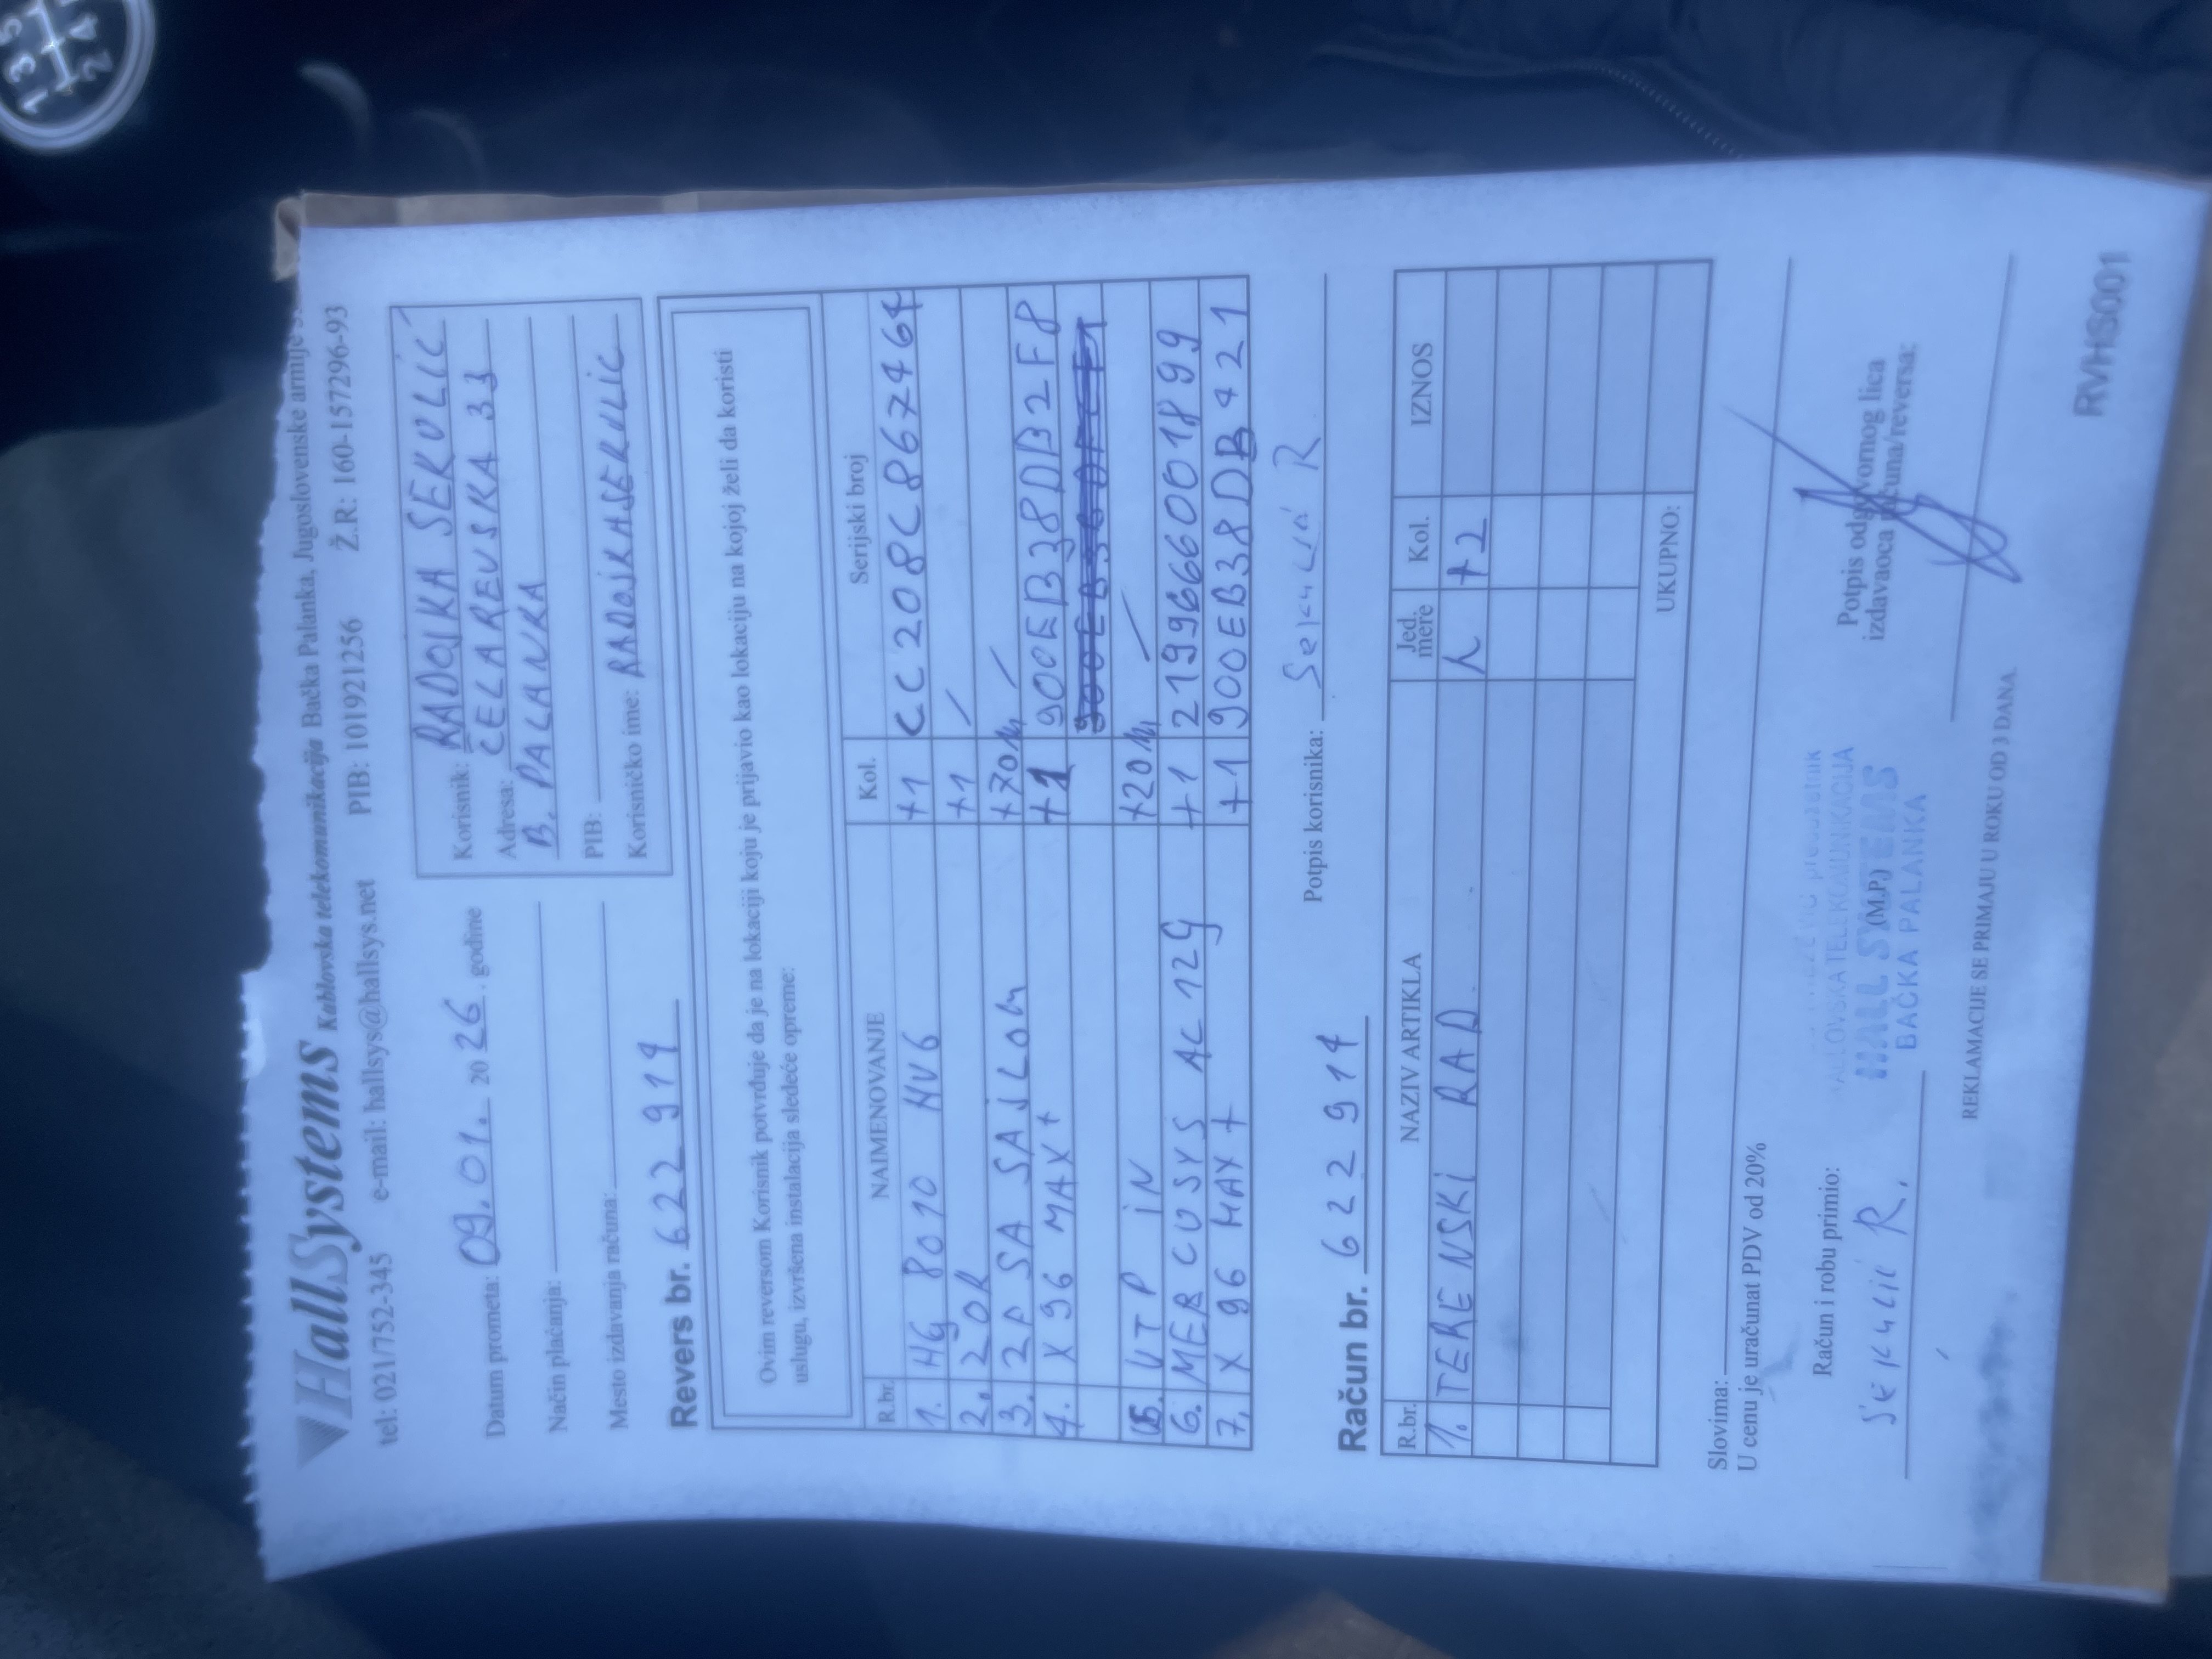 HallSystems Kablovska telekomunikacija Bačka Palanka, Jugoslovenske armije
tel: 021/752-345 e-mail: hallsys@hallsys.net PIB: 101921256 Ž.R: 160-157296-93
Datum prometa: 09.01. 2026. godine
Način plaćanja:
Mesto izdavanja računa:
Korisnik: RADOJKA SEKULIĆ
Adresa: ČELAREVSKA 33
B. PALANKA
PIB:
Korisničko ime: RADOJKASEKULIC
Revers br. 622914
Ovim reversom Korisnik potvrđuje da je na lokaciji koju je prijavio kao lokaciju na kojoj želi da koristi
uslugu, izvršena instalacija sledeće opreme:
R.br. NAIMENOVANJE Kol. Serijski broj
1. HG 8010 HV6 +1 CC208C867464
2. ZOK +1 /
3. 2F SA SAJLOM +70M /
4. X96 MAX+ +1 900EB38DB2F8
5. UTP IN +20M /
6. MERCUSYS AC12G +1 2199660001899
7. X96 MAX+ +1 900EB38DB421
Potpis korisnika: Sekulić R.
Račun br. 622914
R.br. NAZIV ARTIKLA Jed. mere Kol. IZNOS
1. TERENSKI RAD h +2
UKUPNO:
Slovima:
U cenu je uračunat PDV od 20%
Račun i robu primio:
Sekulić R.
KABLOVSKA TELEKOMUNIKACIJA
HALL SYSTEMS
(M.P.)
BAČKA PALANKA
Potpis odgovornog lica
izdavaoca računa/reversa:
REKLAMACIJE SE PRIMAJU U ROKU OD 3 DANA.
RVHS001
1 3 5
2 4